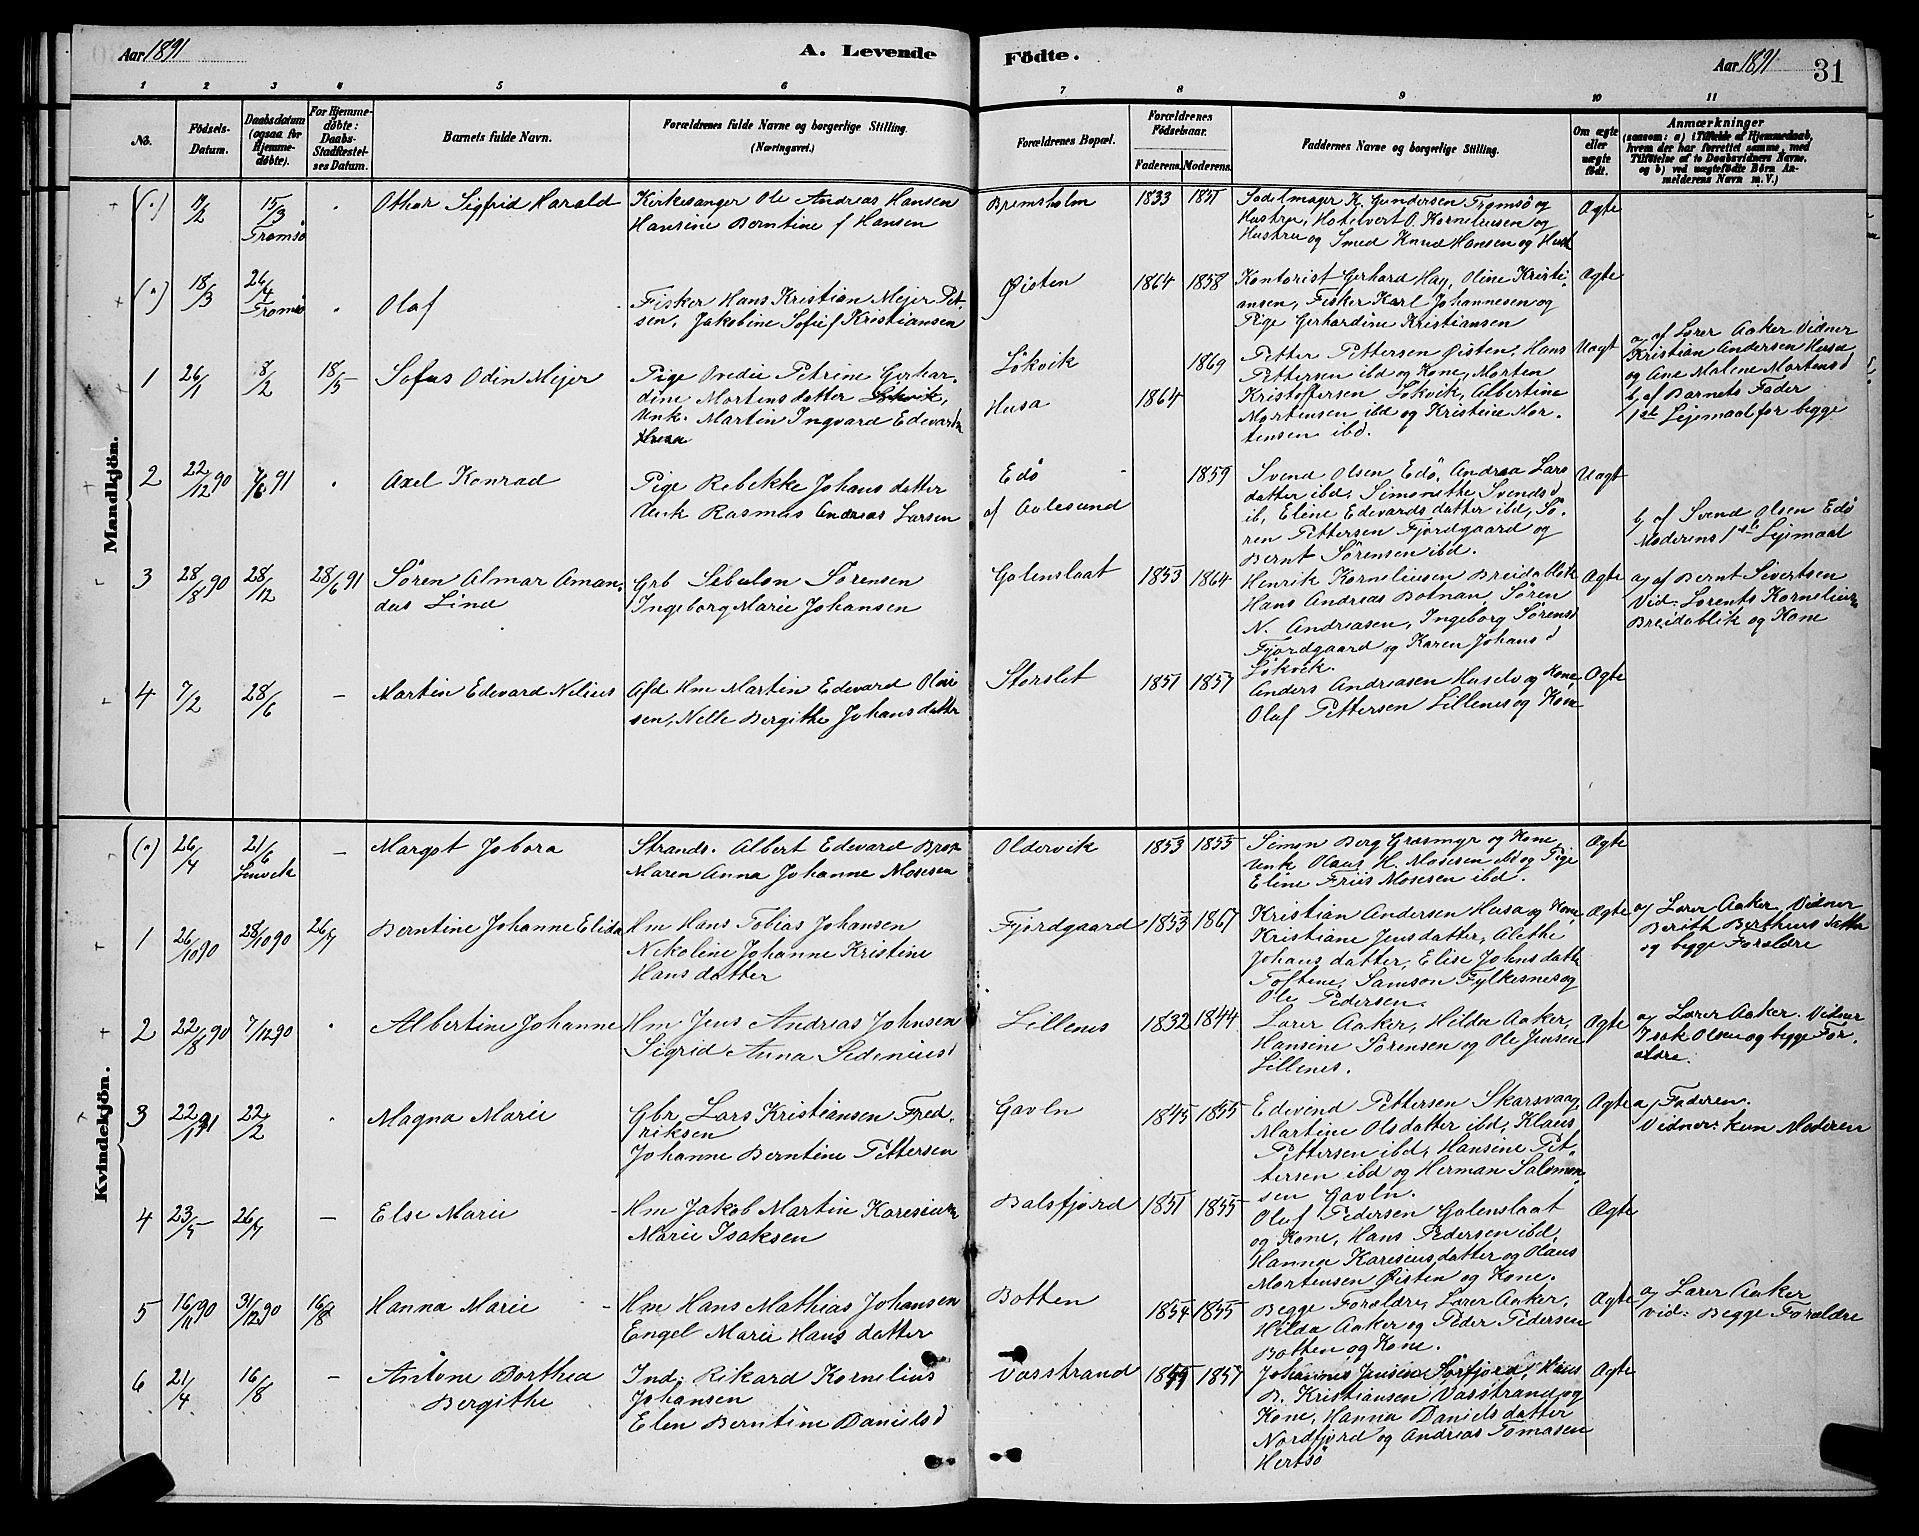 Aar 1891
A. Levende
Födte.
Aar 1891
31
1 2 3 4 5 6 7 8 9 10 11
No.
Födsels-
Datum.
Daabsdatum
(ogsaa for
Hjemme-
døbte).
For Hjemme-
døbte:
Daabs
Stadfæstel-
ses Datum.
Barnets fulde Navn.
Forældrenes fulde Navne og borgerlige Stilling.
(Næringsvei.)
Forældrenes Bopæl.
Forældrenes
Födselsaar.
Faderens. Moderens.
Faddernes Navne og borgerlige Stilling.
Om ægte
eller
uægte
født.
Anmærkninger
(saasom: a) i Tilfælde af Hjemmedaab,
hvem der har forrettet samme, med
Tilföielse af to Daabsvidners Navne,
og b) ved uægtefödte Börn An-
melderens Navn m. V.)
Mandkjön.
(") 7/2 15/3 Tromsø " Othar Sigfrid Harald
Kirkesanger Ole Andreas Hansen
Hansine Berntine f Hansen
Bremsholm 1833 1851
Sadelmager K. Gundersen Tromsø og
Hustru, Hotelvert O. Korneliusen og
Hustru og Smed Knud Hansen og Hust
Ægte
(") 18/3 26/4 Tromsø " Olaf
Fisker Hans Kristian Mejer Pet-
sen, Jakobine Sofie f Kristiansen
Øisten 1864 1858
Kontorist Gerhard Hay, Oline Kristi-
ansen, Fisker Karl Johannesen og
Pige Gerhardine Kristiansen
Ægte
1 26/1 8/2 18/5 Sofus Odin Mejer
Pige Ovedie Petrine Gerhar-
dine Mortensdatter Løkvik,
Unk. Martin Ingvard Edevardsen
Husa
Løkvik 1869
Husa 1864
Petter Pettersen Øisten, Hans
Pettersen ibd og Kone, Morten
Kristoffersen Løkvik, Albertine
Mortensen ibd og Kristine Mor-
tensen ibd.
Uægt
a, af Lærer Aaker Vidner
Kristian Andersen Husa
og Ane Malene Mortensd
b, af Barnets Fader
1ste Lejemaal for begge
2 22/12 90 7/6 91 " Axel Konrad
Pige Rebekke Johansdatter
Unk Rasmus Andreas Larsen
Edø 1859
af Aalesund
Svend Olsen Edø, Andrea Lars
datter ibd, Simonette Svendsd
ib, Eline Edevardsdatter ibd, Sø-
ren Pettersen Fjordgaard og
Bernt Sørensen ibd.
Uægt
b, af Svend Olsen Edø
Moderens 1ste Lejemaal
3 28/8 90 28/12 28/6 91 Søren Almar Aman-
das Lind
Grb Sebulon Sørensen
Ingeborg Marie Johansen
Galenslaat 1853 1864
Henrik Korneliusen Breidablik
Hans Andreas Botnan, Søren
N. Andreasen, Ingeborg Sørensd
Fjordgaard og Karen Johansd
Løkvik.
Ægte
a, af Bernt Sivertsen
Vid: Lorents Korneliusen
Breidablik og Kone
4 7/2 28/6 – Martin Edevard Nelius
Afd Hm Martin Edevard Olai
sen, Nelle Bergithe Johansdatter
Storslet 1851 1857
Anders Andreasen Huselv og Kone,
Olaf Pettersen Lillenes og Kone
Ægte
Kvindekjön.
(") 26/4 21/6 Lenvik – Margot Jobora
Strands. Albert Edevard Brox
Maren Anna Johanne Mosesen
Oldervik 1853 1855
Simon Berg Grasmyr og Kone,
Unk Olaus H. Mosesen ibd og Pige
Eline Friis Mosesen ibd.
Ægte
1 26/10 90 28/10 90 26/7 Berntine Johanne Elida
Hm Hans Tobias Johansen
Nikoline Johanne Kristine
Hansdatter
Fjordgaard 1853 1867
Kristian Andersen Husa og Kone,
Kristiane Jensdatter, Alethe
Johansdatter, Elise Johnsdatter
Toftene, Samson Fylkesnes og
Ole Pedersen.
Ægte
a, Lærer Aaker, Vidner
Berith Bertheusdatter
og begge Forældre
2 22/8 90 7/12 90 " Albertine Johanne
Hm Jens Andreas Johnsen
Sigrid Anna Sedeniusd
Lillenes 1832 1844
Lærer Aaker, Hilda Aaker,
Hansine Sørensen og Ole Jensen
Lillenes.
Ægte
a, Lærer Aaker. Vidner
Isak Olsen og begge For-
ældre.
3 22/1 91 22/2 " Magna Marie
Gbr Lars Kristiansen Fred-
riksen
Johanne Berntine Pettersen
Gavln 1845 1855
Edevind Pettersen Skarsvaag,
Martine Olsdatter ibd, Klaus
Pettersen ibd, Hansine Pet-
tersen ibd og Herman Salomon-
sen Gavln.
Ægte
a, Faderen.
Vidner: kun Moderen
4 23/5 26/7 – Else Marie
Hm Jakob Martin Karesiusen
Marie Isaksen
Balsfjord 1851 1855
Oluf Pedersen Galenslaat
og Kone, Hans Pedersen ibd,
Hanna Karesiusdatter og Olaus
Mortensen Øisten og Kone.
Ægte
5 16/11 90 31/12 90 16/8 Hanna Marie
Hm Hans Mathias Johansen
Engel Marie Hansdatter
Botten 1854 1855
Begge Forældre, Lærer Aaker,
Hilda Aaker og Peder Pedersen
Botten og Kone.
Ægte
a, Lærer Aaker
Vid: Begge Forældre
6 21/4 16/8 – Antone Dorthea
Bergithe
Ind: Rikard Kornelius
Johansen
Elen Berntine Danielsd
Vasstrand 1857
Johannes Jensen Sørfjord, Hans
B. Kristiansen Vasstrand og
Kone, Hanna Danielsdatter
Nordfjord og Andreas Tomasen
Hertsø
Ægte